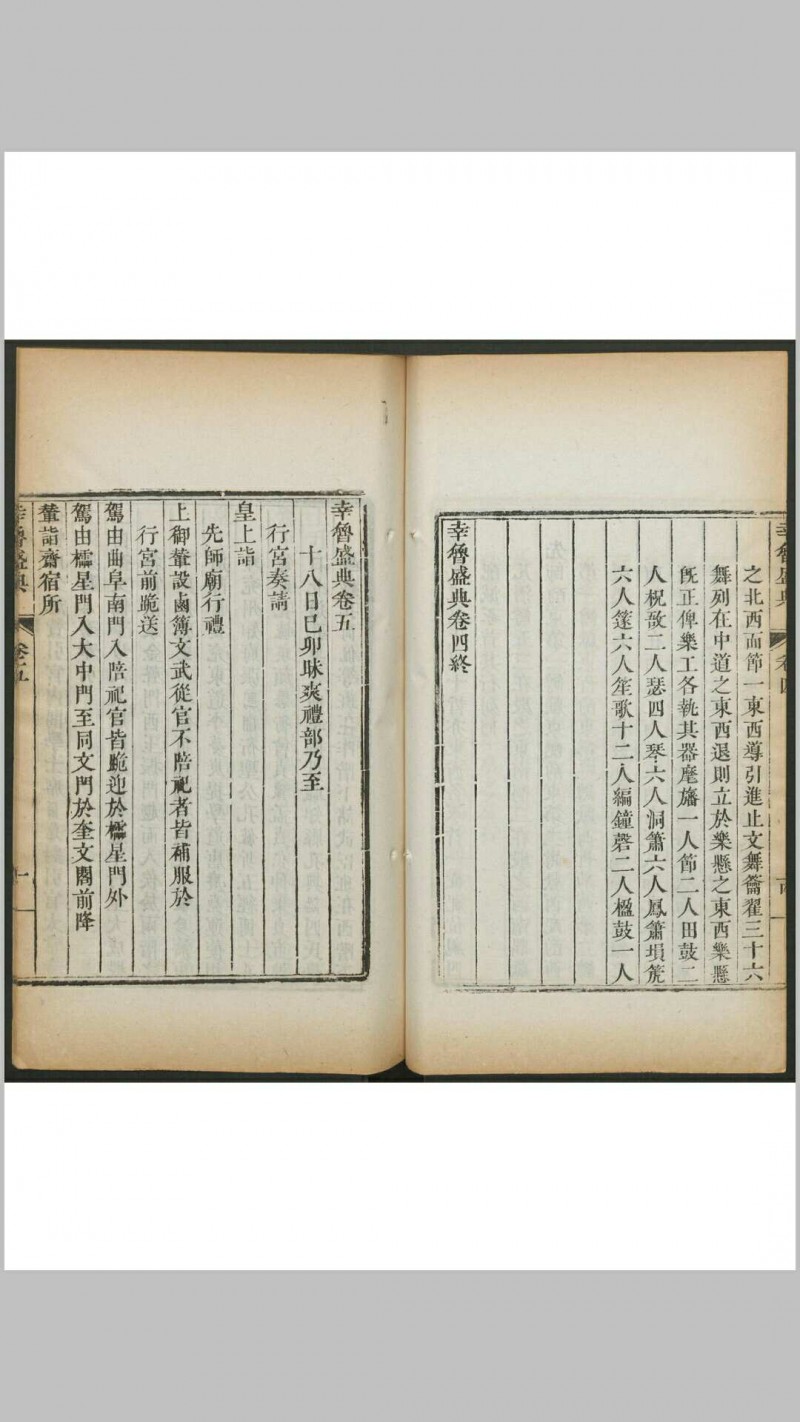 幸魯盛典
卷四
之北西面節一東西導引進止文舞籥翟三十六
舞列在中道之東西退則立於樂懸之東西樂懸
旣正俾樂工各執其器麾旛一人節二人田鼓二
人柷敔二人瑟四人琴六人洞簫六人鳳簫塤箎
六人篴六人笙歌十二人編鐘磬二人楹鼓一人
幸魯盛典卷四終
幸魯盛典卷五
十八日己卯昧爽禮部乃至
行宮奏請
皇上詣
先師廟行禮
上御輦設鹵簿文武從官不陪祀者皆補服於
行宮前跪送
駕由曲阜南門入陪祀官皆跪迎於櫺星門外
駕由櫺星門入大中門至同文門於奎文閣前降
輦詣齋宿所
幸魯盛典
卷五
一